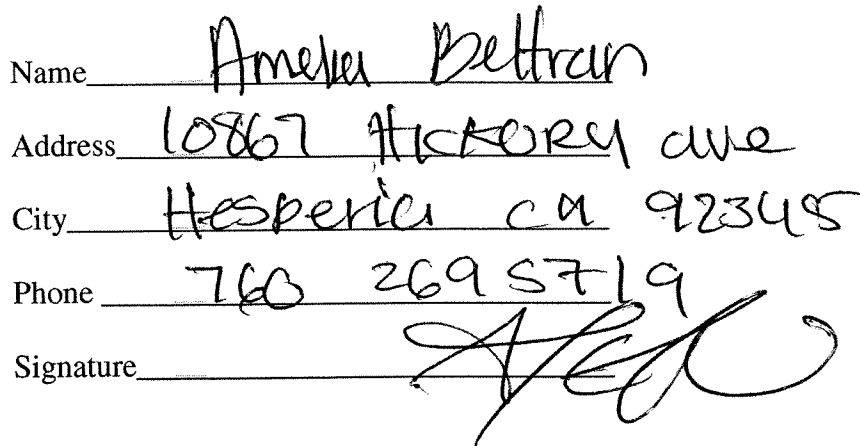 Name Amelia Beltran
Address 10867 HICKORY ave
City Hesperia ca 92345
Phone 760 269 5719
Signature